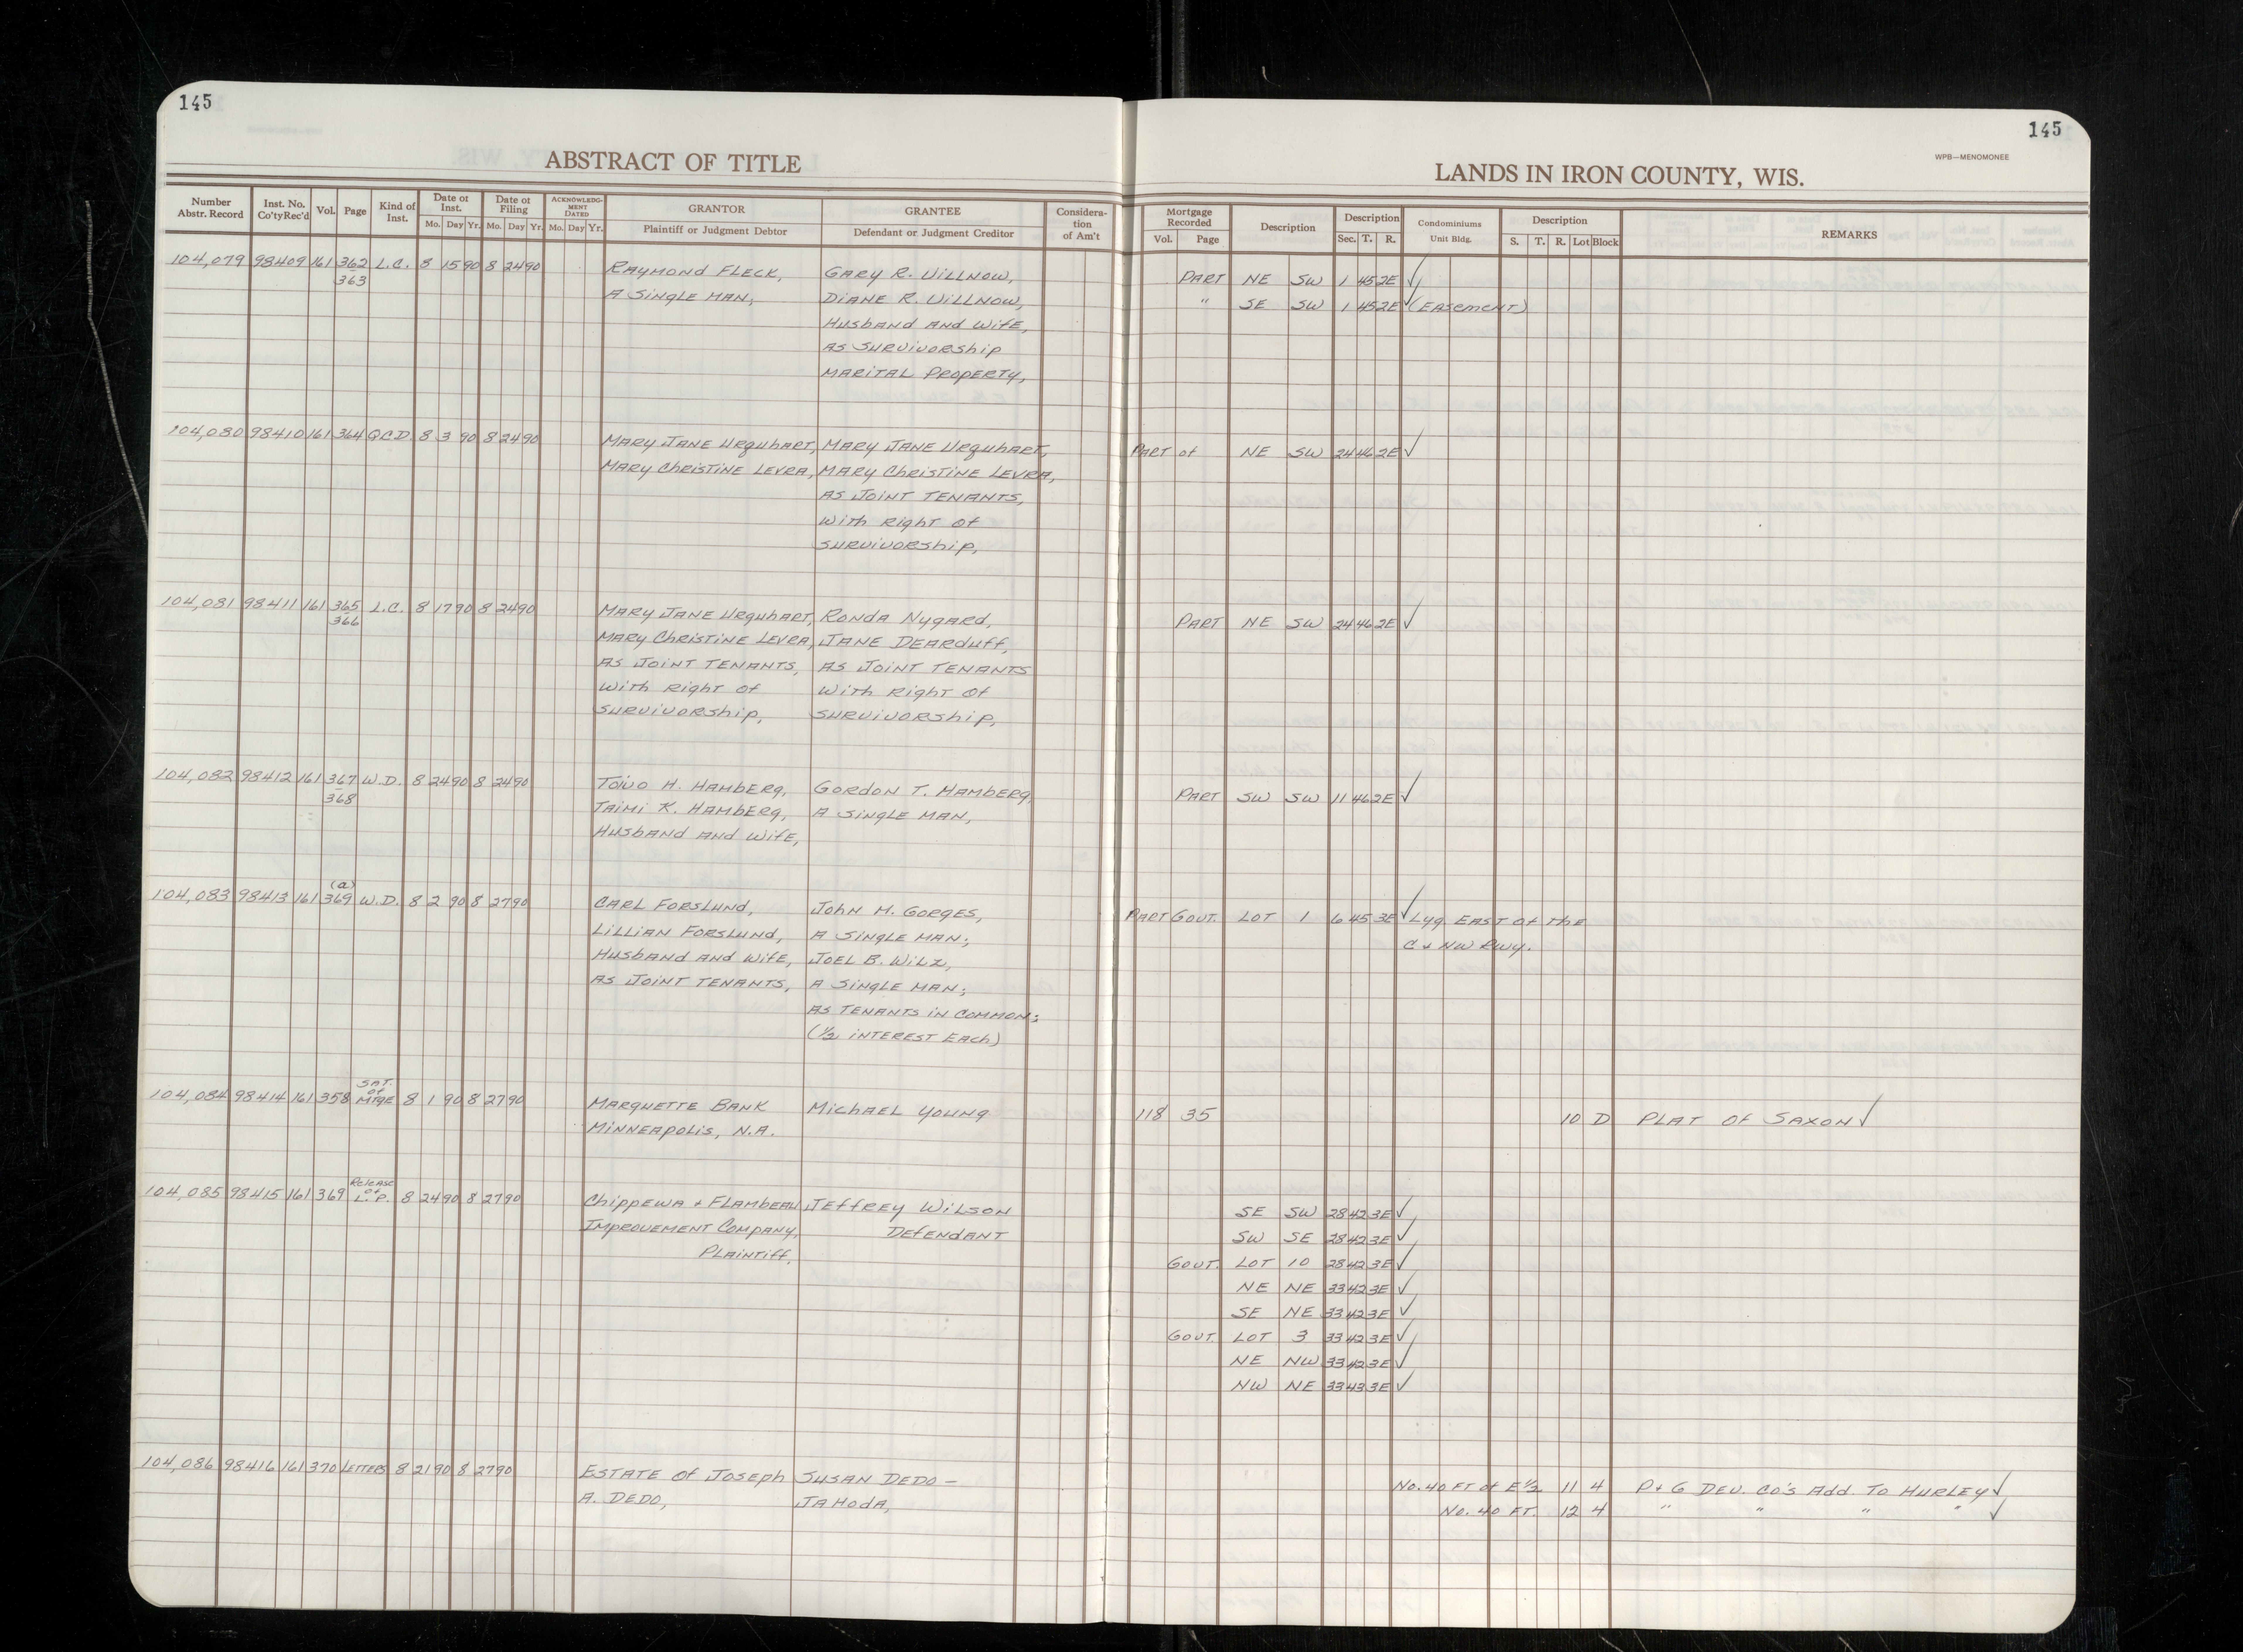 145
145
WPB—MENOMONEE
ABSTRACT OF TITLE
LANDS IN IRON COUNTY, WIS.
Number Abstr. Record | Inst. No. Co'tyRec'd | Vol. | Page | Kind of Inst. | Date of Inst. Mo. Day Yr. | Date of Filing Mo. Day Yr. | ACKNOWLEDGMENT DATED Mo. Day Yr. | GRANTOR Plaintiff or Judgment Debtor | GRANTEE Defendant or Judgment Creditor | Consideration of Am't | Mortgage Recorded Vol. Page | Description | Description Sec. T. R. | Condominiums Unit Bldg. | Description S. T. R. Lot Block | REMARKS
104,079 98409 161 362 L.C. 8 15 90 8 24 90 RAYMOND FLECK, GARY R. VILLNOW, PART NE SW 1 45 2E ✓
363 A SINGLE MAN; DIANE R. VILLNOW, " SE SW 1 45 2E ✓ (EASEMENT)
HUSBAND AND WIFE,
AS SURVIVORSHIP
MARITAL PROPERTY,
104,080 98410 161 364 Q.C.D. 8 3 90 8 24 90 MARY JANE URQUHART, MARY JANE URQUHART, PART OF NE SW 24 46 2E ✓
MARY CHRISTINE LEVRA, MARY CHRISTINE LEVRA,
AS JOINT TENANTS,
WITH RIGHT OF
SURVIVORSHIP,
104,081 98411 161 365 L.C. 8 17 90 8 24 90 MARY JANE URQUHART, RONDA NYGARD, PART NE SW 24 46 2E ✓
366 MARY CHRISTINE LEVRA, JANE DEARDUFF,
AS JOINT TENANTS, AS JOINT TENANTS
WITH RIGHT OF WITH RIGHT OF
SURVIVORSHIP, SURVIVORSHIP,
104,082 98412 161 367 W.D. 8 24 90 8 24 90 TOIVO H. HAMBERG, GORDON T. HAMBERG, PART SW SW 11 46 2E ✓
368 TAIMI K. HAMBERG, A SINGLE MAN,
HUSBAND AND WIFE,
(a)
104,083 98413 161 369 W.D. 8 2 90 8 27 90 CARL FORSLUND, JOHN M. GORGES, PART GOVT. LOT 1 6 45 3E ✓ LYG EAST OF THE
LILLIAN FORSLUND, A SINGLE MAN; C + NW RWY.
HUSBAND AND WIFE, JOEL B. WILZ,
AS JOINT TENANTS, A SINGLE MAN;
AS TENANTS IN COMMON;
(1/2 INTEREST EACH)
104,084 98414 161 358 SAT. OF MTGE 8 1 90 8 27 90 MARQUETTE BANK MICHAEL YOUNG 118 35 10 D PLAT OF SAXON ✓
MINNEAPOLIS, N.A.
104,085 98415 161 369 RELEASE OF L.P. 8 24 90 8 27 90 CHIPPEWA + FLAMBEAU JEFFREY WILSON SE SW 28 42 3E ✓
IMPROVEMENT COMPANY, DEFENDANT SW SE 28 42 3E ✓
PLAINTIFF, GOVT. LOT 10 28 42 3E ✓
NE NE 33 42 3E ✓
SE NE 33 42 3E ✓
GOVT. LOT 3 33 42 3E ✓
NE NW 33 42 3E ✓
NW NE 33 43 3E ✓
104,086 98416 161 370 LETTERS 8 21 90 8 27 90 ESTATE OF JOSEPH SUSAN DEDO- NO. 40 FT OF E 1/2 11 4 P + G DEV. CO'S ADD. TO HURLEY ✓
A. DEDO, JAHODA, NO. 40 FT. 12 4 " " " " ✓